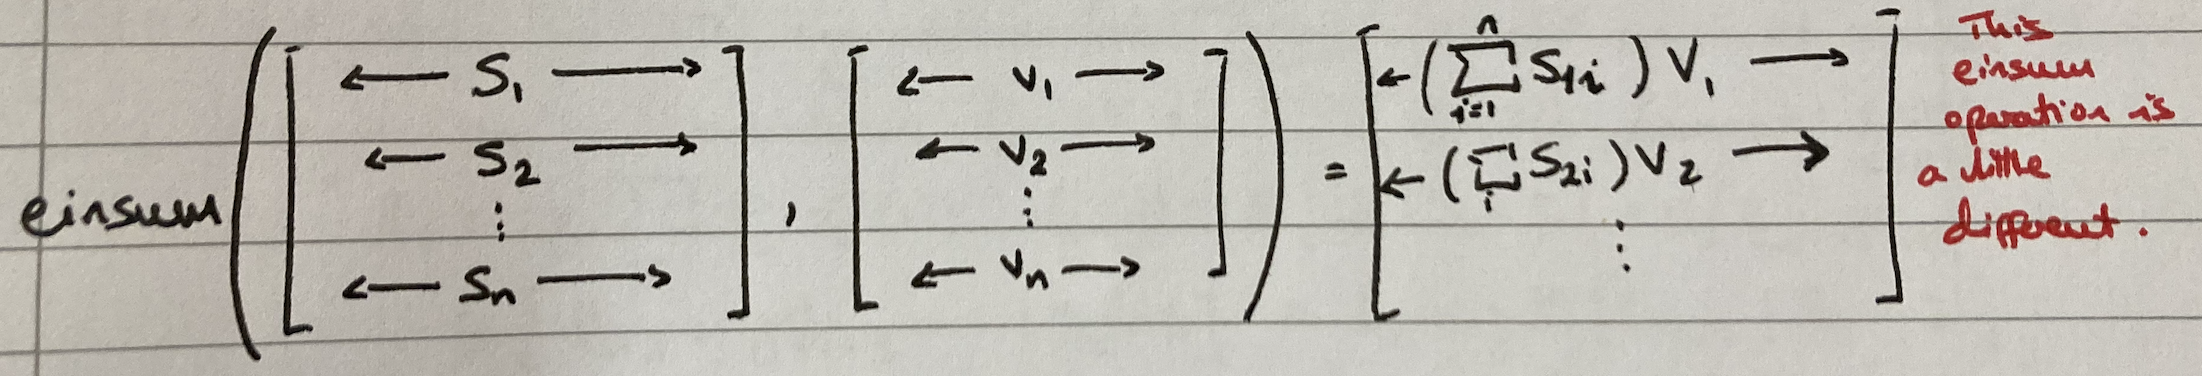 einsum ( [ ← S₁ → ← S₂ → ⋮ ← Sₙ → ] , [ ← v₁ → ← v₂ → ⋮ ← vₙ → ] ) = [ ← ( ∑ᵢ₌₁ⁿ S₁ᵢ ) V₁ → ← ( ∑ᵢ S₂ᵢ ) V₂ → ⋮ ]
This
einsum
operation is
a little
different.